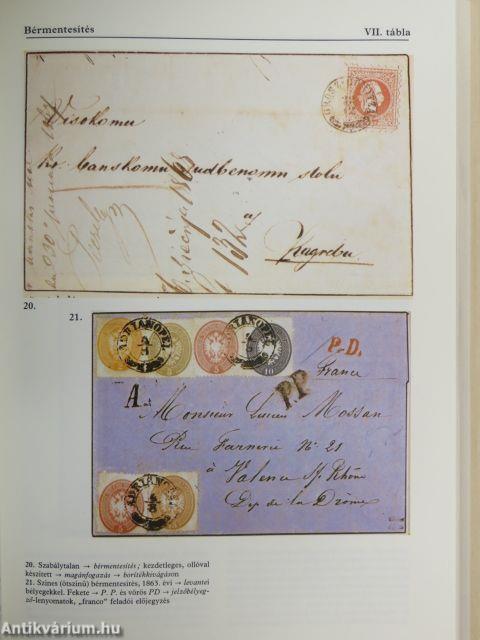 Bérmentesítés VII. tábla
Visokomu
kr. banskomu sudbenomu stolu
u
Zagrebu
132
20.
21.
ADRIANOPEL
ADRIANOPEL
10
P.D.
France
P.P.
A.
Monsieur Lucien Mossan
Rue Farnerie No 21
à Valence s/ Rhône
Dép de la Drôme
ADRIANOPEL
20. Szabálytalan → bérmentesítés; kezdetleges, ollóval
készített → magánfogazás → borítékkivágáson
21. Színes (ötszínű) bérmentesítés, 1863. évi → levantei
bélyegekkel. Fekete → P. P. és vörös PD → jelzőbélyeg-
ző-lenyomatok, „franco” feladói előjegyzés
Antikvárium.hu
http://www.antikvarium.hu